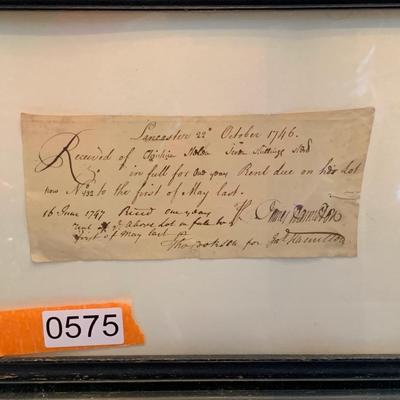 Lancaster 22d October 1746.
Received of Christian Seven Shillings
in full for One year Rent due on his Lot
now No 132 to the first of May last.
16 June 1747 Recd one year
Rent of ye Above Lot in full to ye
first of May last
Jams Hamilton
Tho Cookson for Jas Hamilton
0575